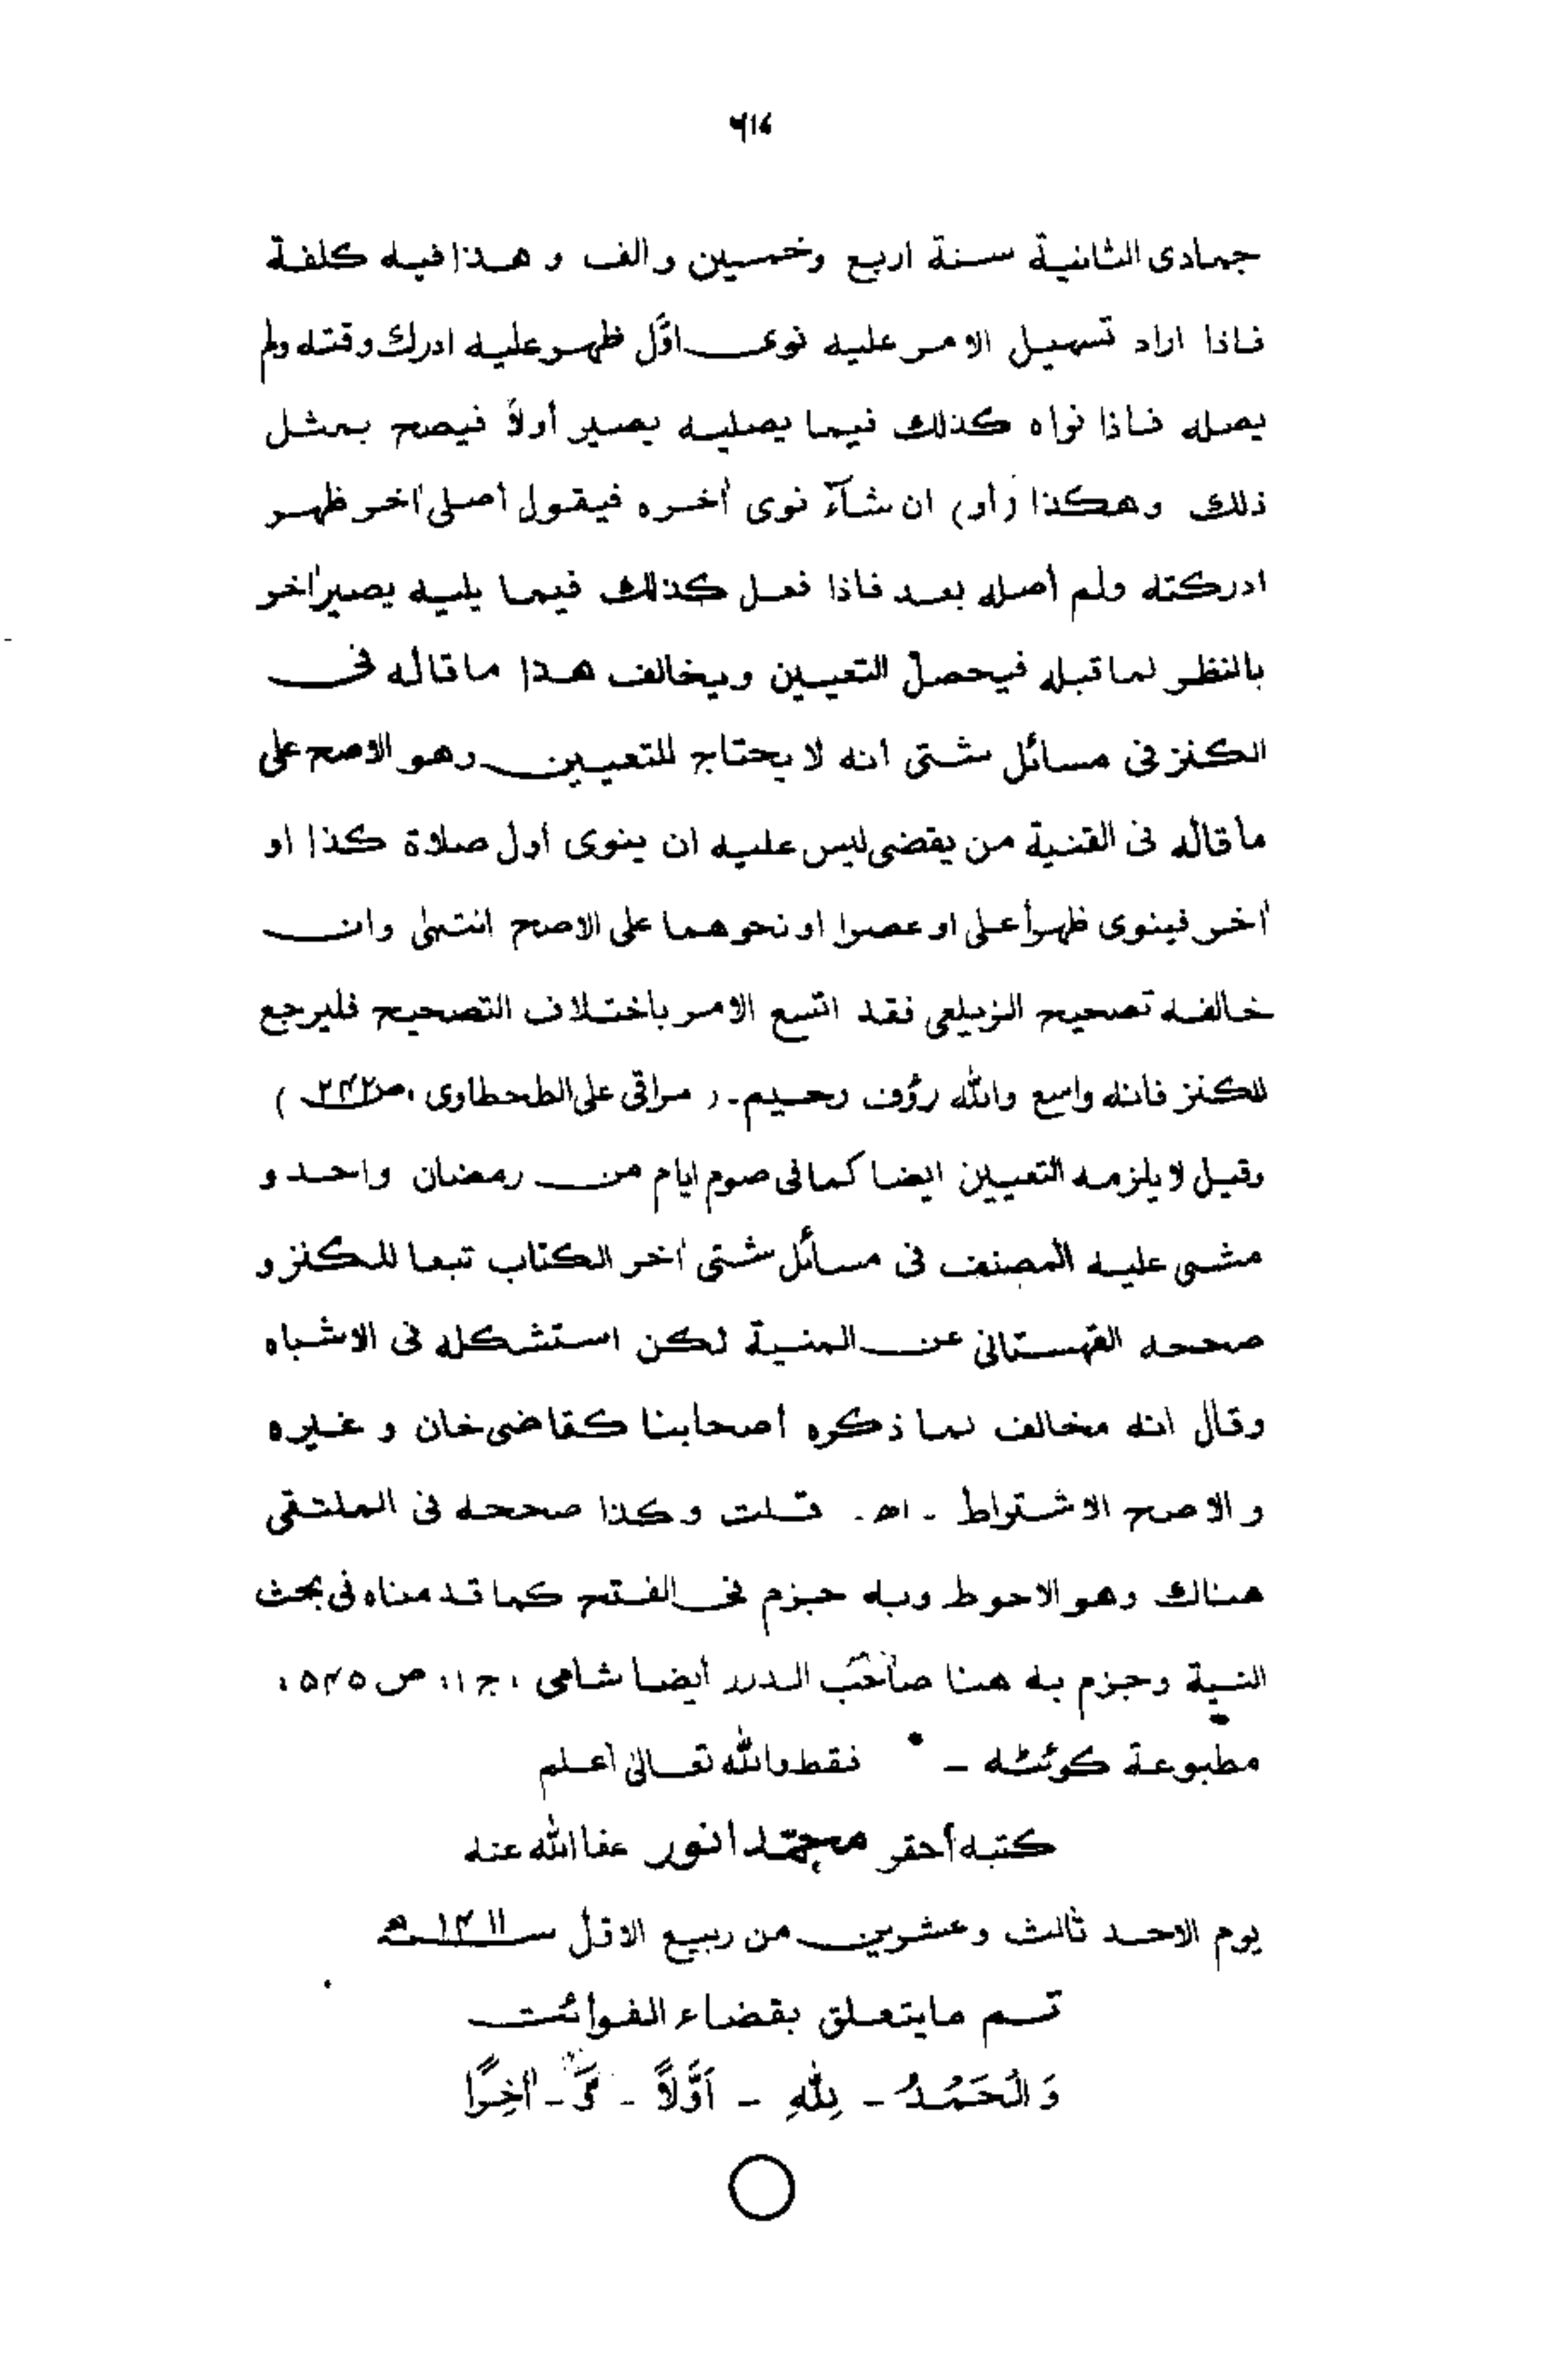 ٦١٤
جمادى الثانية سنة اربع وخمسين والف و هذا فيه كلفة
فاذا اراد تسهيل الامر عليه نوى اوّل ظهر عليه ادرك وقته ولم
يصله فاذا نواه كذلك فيما يصليه يصير أولاً فيصح بمثل
ذلك وهكذا (أو) ان شآء نوى أخره فيقول أصلى أخر ظهر
ادركته ولم أصله بعد فاذا فعل كذلك فيما يليه يصير أخر
بالنظر لما قبله فيحصل التعيين ويخالف هذا ما قاله فى
الكنز فى مسائل شتى انه لا يحتاج للتعيين وهو الاصح على
ما قاله فى القنية من يقضى ليس عليه ان ينوى أول صلاة كذا او
أخر فينوى ظهرا على او عصرا او نحوهما على الاصح انتهى وان
خالفه تصحيح الزيلعى فقد اتسع الامر باختلاف التصحيح فليرجع
للكنز فانه واسع والله رؤف رحيم۔ ( مراقى على الطحطاوى ، ص ۲۴۲ )
وقيل لا يلزمه التعيين ايضا كما فى صوم ايام من رمضان واحد و
مشى عليه المصنف فى مسائل شتى أخر الكتاب تبعا للكنز و
صححه القهستانى عن المنية لكن استشكله فى الاشباه
وقال انه مخالف لما ذكره أصحابنا كقاضى خان و غيره
و الاصح الاشتراط ۔ اھ۔ قلت وكذا صححه فى الملتقى
هناك وهو الاحوط وبه جزم فى الفتح كما قدمناه فى بحث
النية وجزم به هنا صاحب الدرر أيضا شامى ، ج ۱ ، ص ۵۴۵ ،
مطبوعة كوئٹه ۔ فقط والله تعالى أعلم
كتبه أحقر محمّد انور عفا الله عنه
يوم الاحد ثالث وعشرين من ربيع الاول سـ ۱۴۱۱ـنة ھ
تم ما يتعلق بقضاء الفوائت
وَالْحَمْدُ ۔ لِلّٰهِ ۔ اَوَّلاً ۔ وَّ ۔ اٰخِرًا